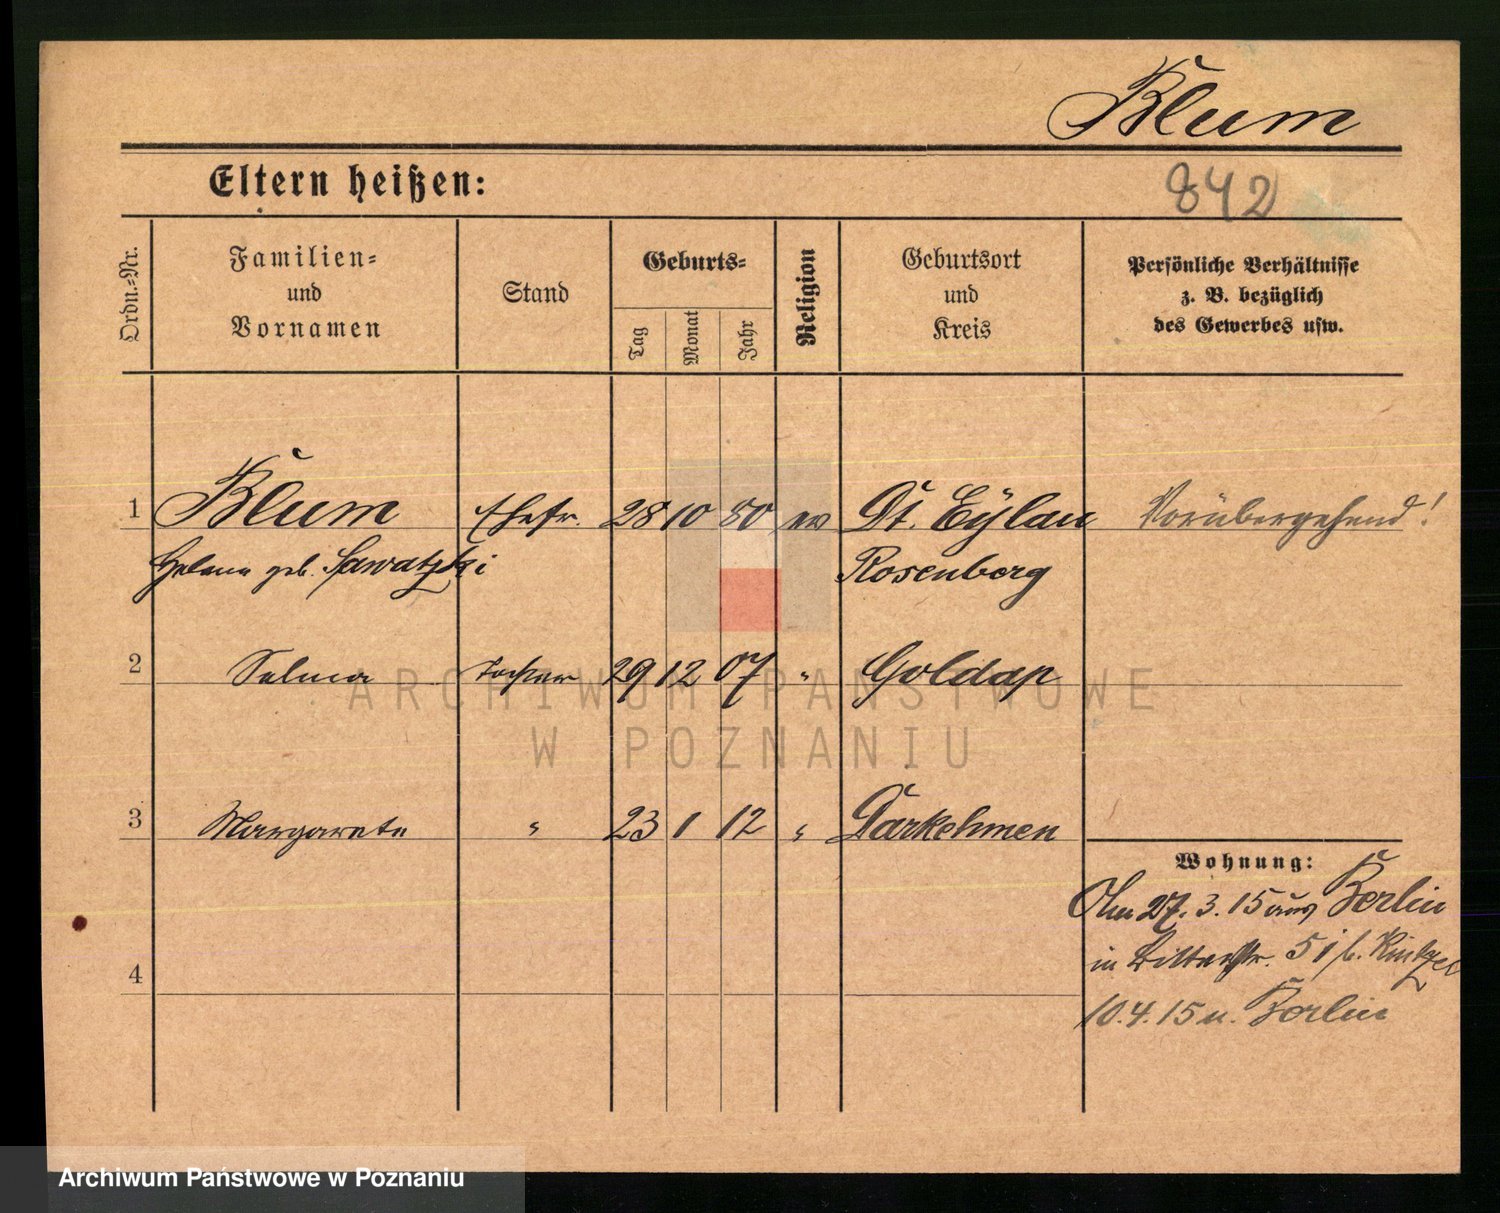 Blum
Eltern heißen:
842
Ordn.-Nr.
Familien-
und
Vornamen
Stand
Geburts-
Tag
Monat
Jahr
Religion
Geburtsort
und
Kreis
Persönliche Verhältnisse
z. B. bezüglich
des Gewerbes usw.
1 Blum Ehefr. 28 10 80 ev Dt. Eylau Vorübergehend!
Helene geb. Sawatzki Rosenberg
2 Selma Tochter 29 12 07 " Goldap
ARCHIWUM PAŃSTWOWE
W POZNANIU
3 Margarete " 23 1 12 " Darkehmen
Wohnung:
27. 3. 15 aus Berlin
in Ritterstr. 5 b.
4
10.4.15 n. Berlin
Archiwum Państwowe w Poznaniu